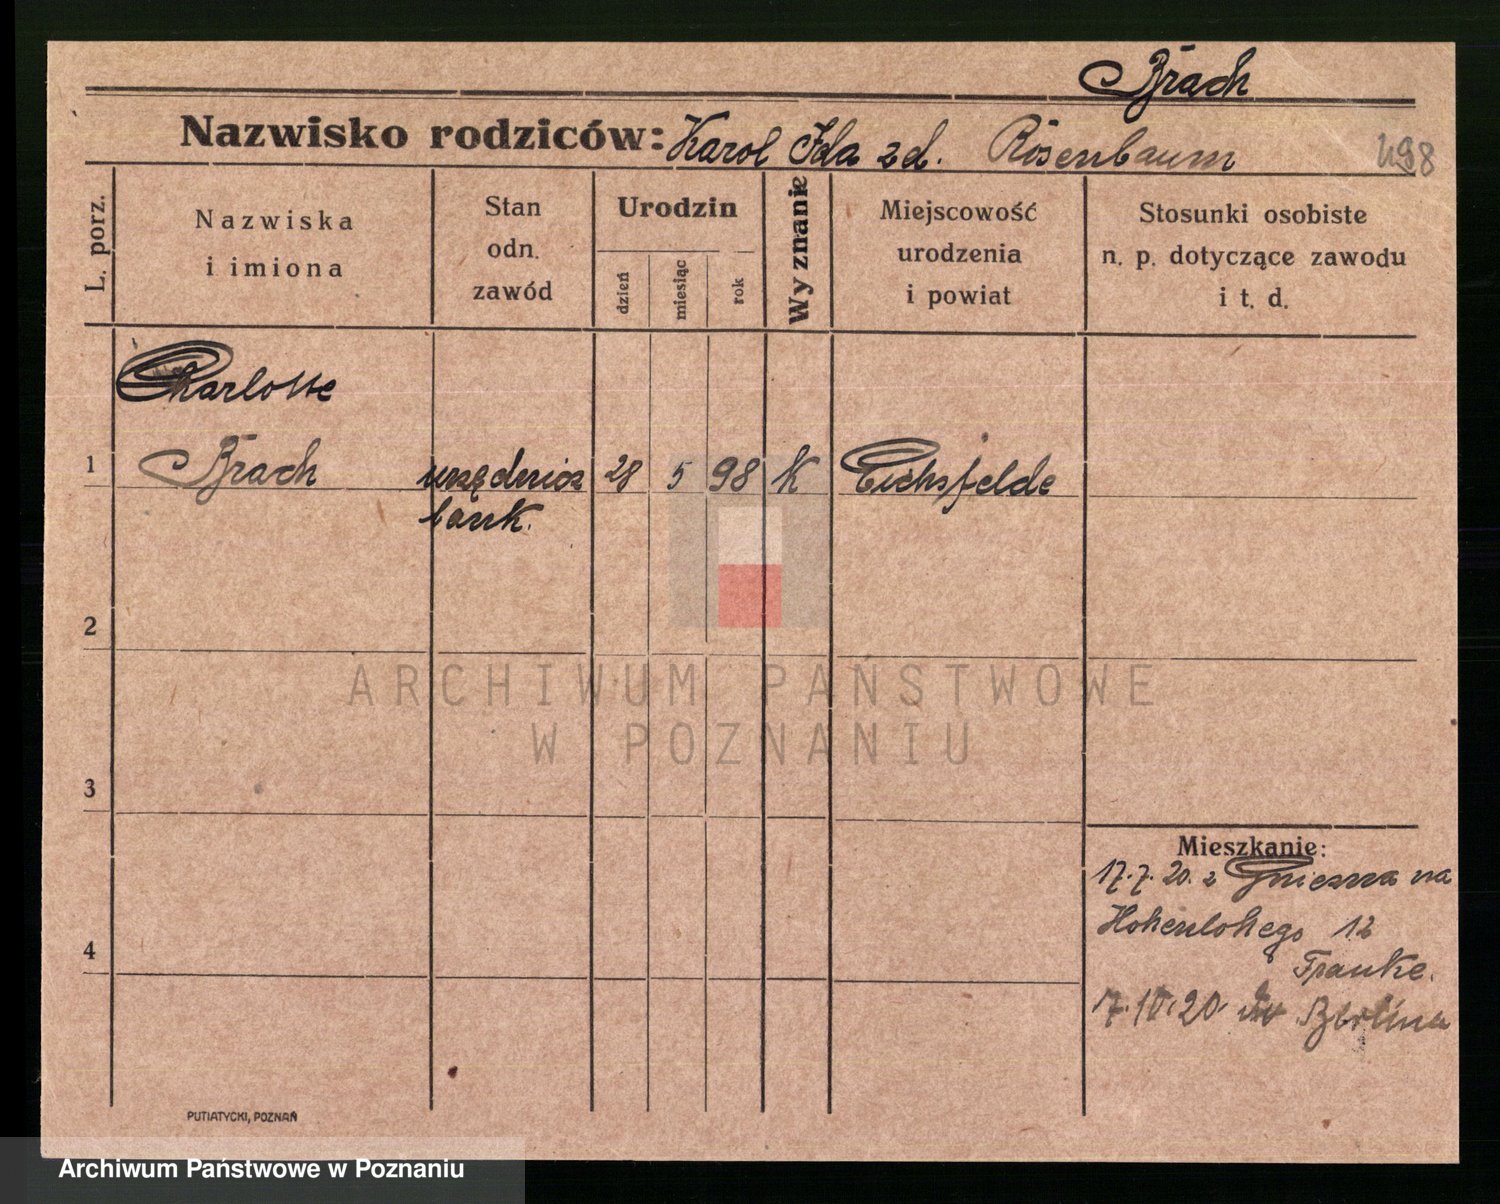 Brach
Nazwisko rodziców: Karol Ida zd. Rosenbaum 498
L. porz.
Nazwiska
i imiona
Stan
odn.
zawód
Urodzin
dzień
miesiąc
rok
Wyznanie
Miejscowość
urodzenia
i powiat
Stosunki osobiste
n. p. dotyczące zawodu
i t. d.
Charlotte
1 Brach urzędnicz 28 5 98 K Eichsfelde
bank.
2
ARCHIWUM PAŃSTWOWE
W POZNANIU
3
Mieszkanie:
17.7.20. z Gniezna na
Hohenlohego 12
4
Franke.
17.10.20 do Berlina
PUTIATYCKI, POZNAŃ
Archiwum Państwowe w Poznaniu